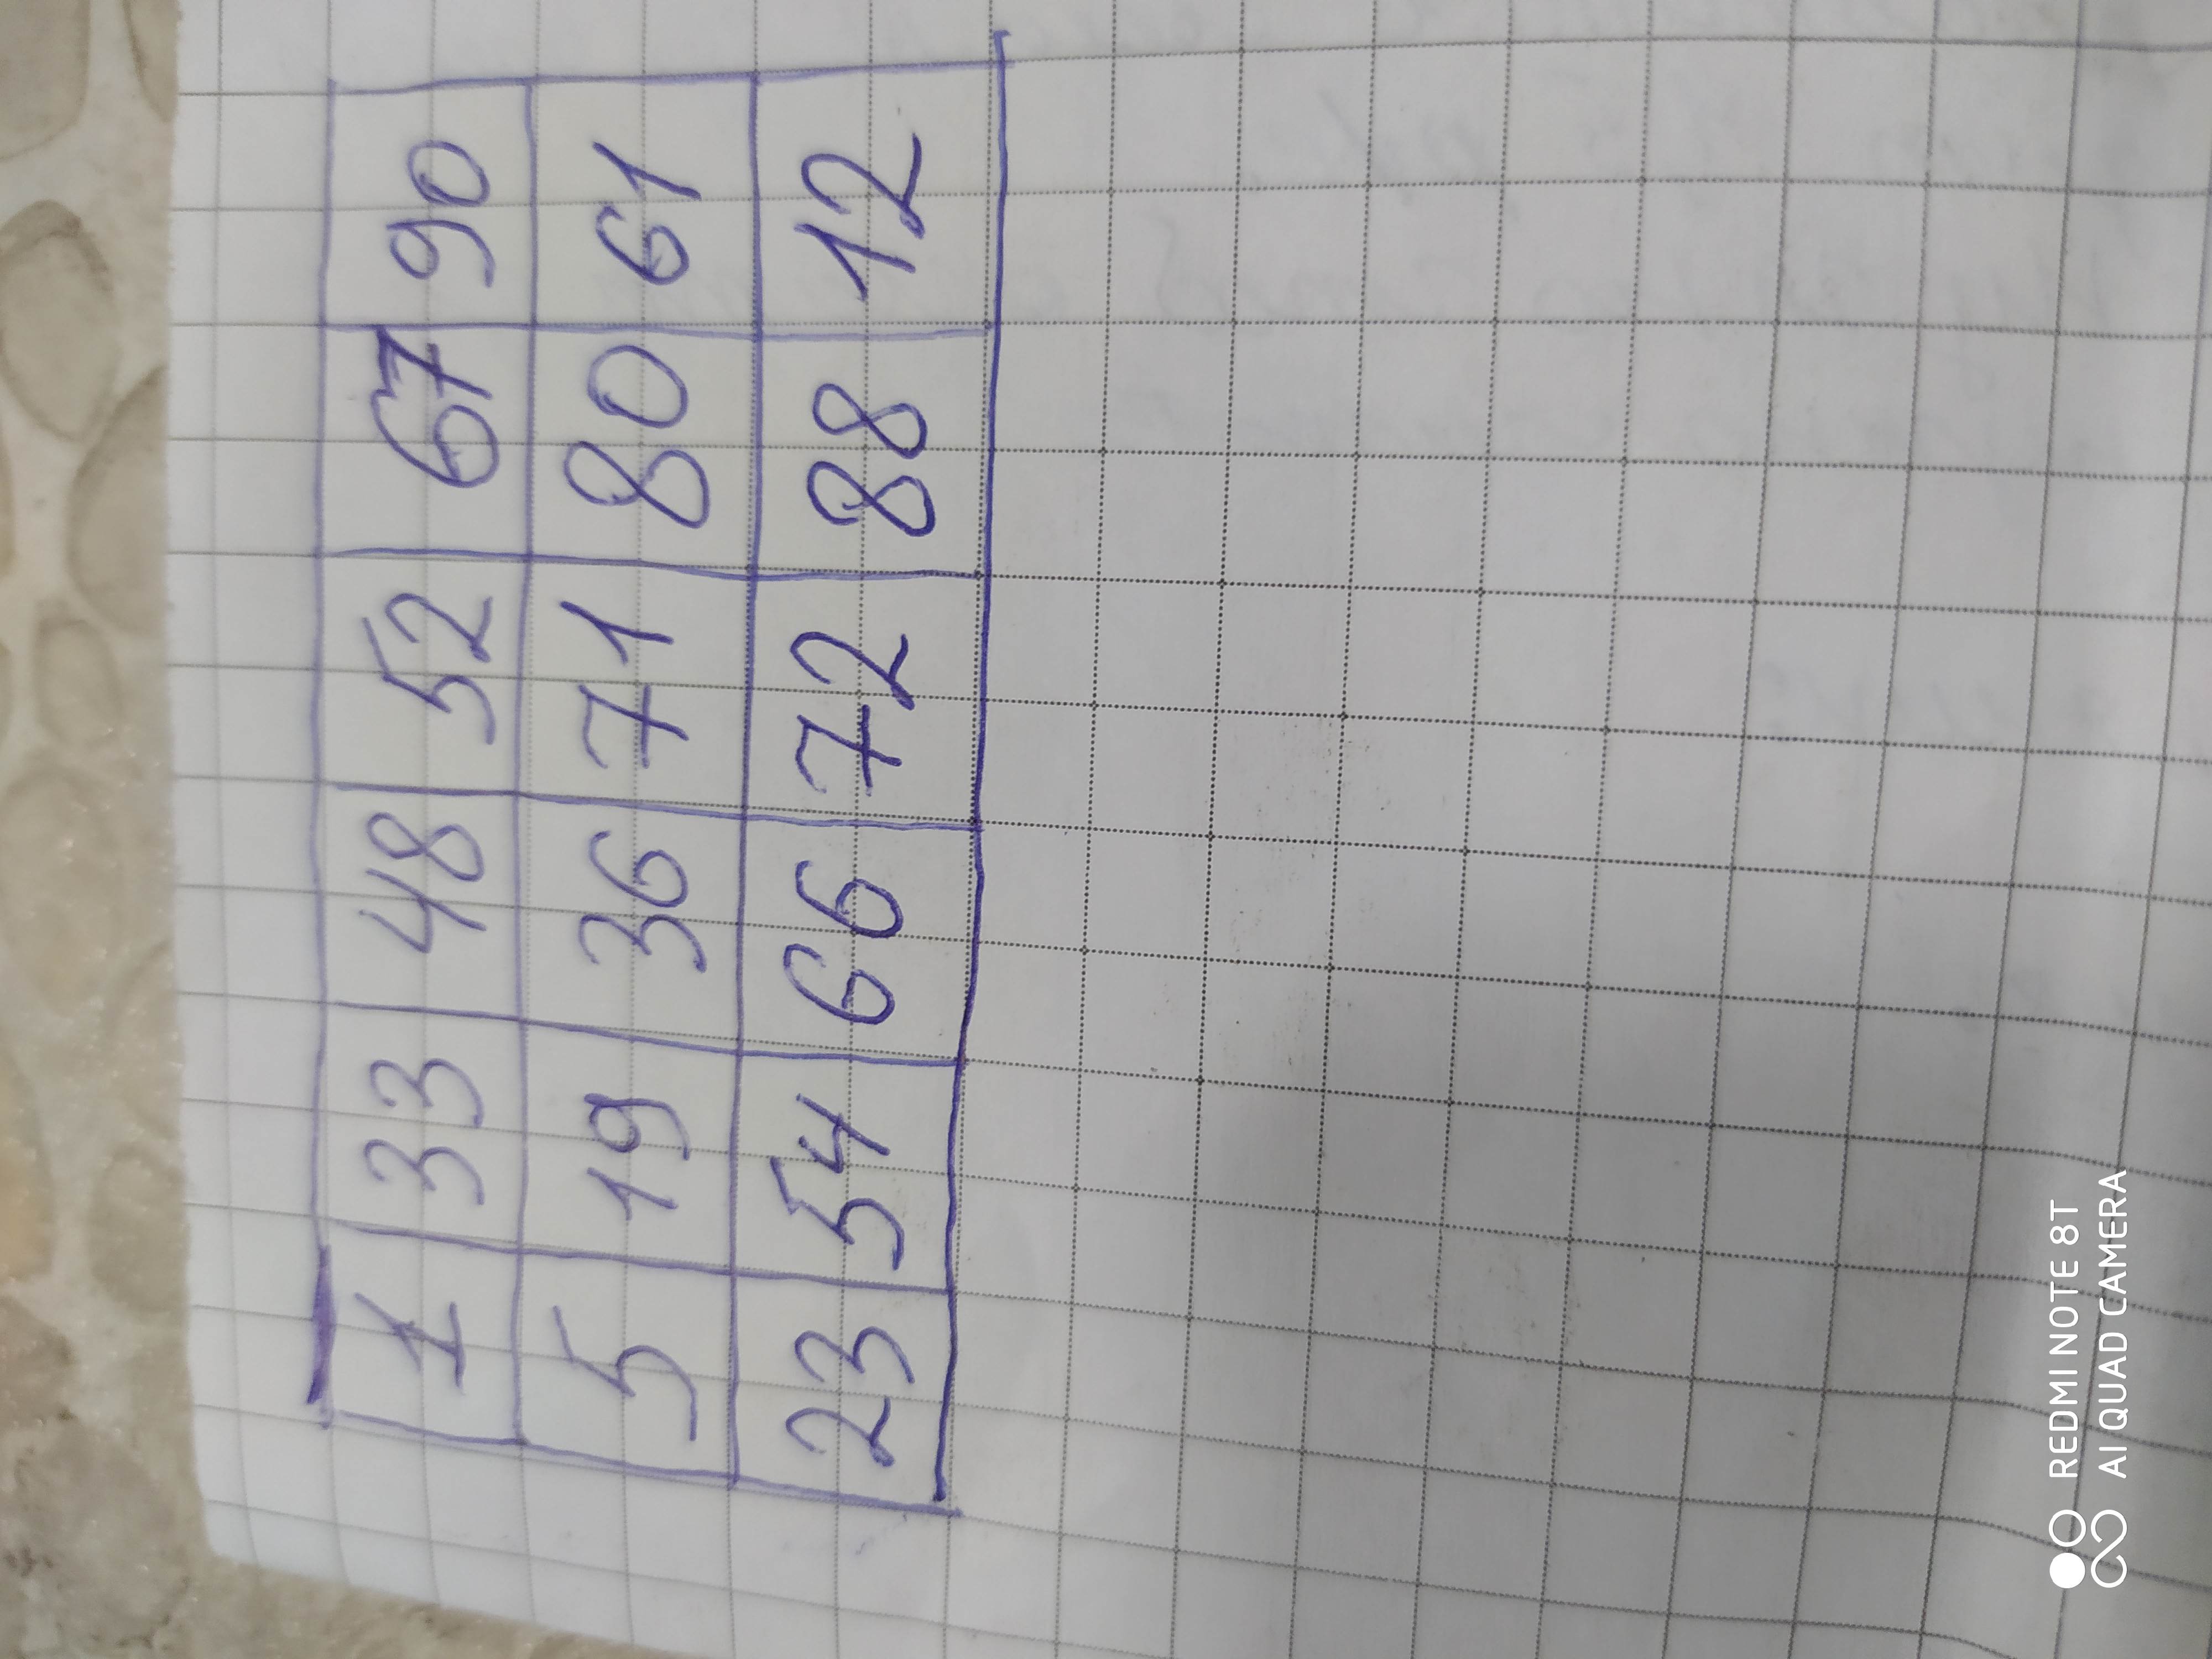 1 33 48 52 67 90
5 19 36 71 80 61
23 54 66 72 88 12
REDMI NOTE 8T
AI QUAD CAMERA